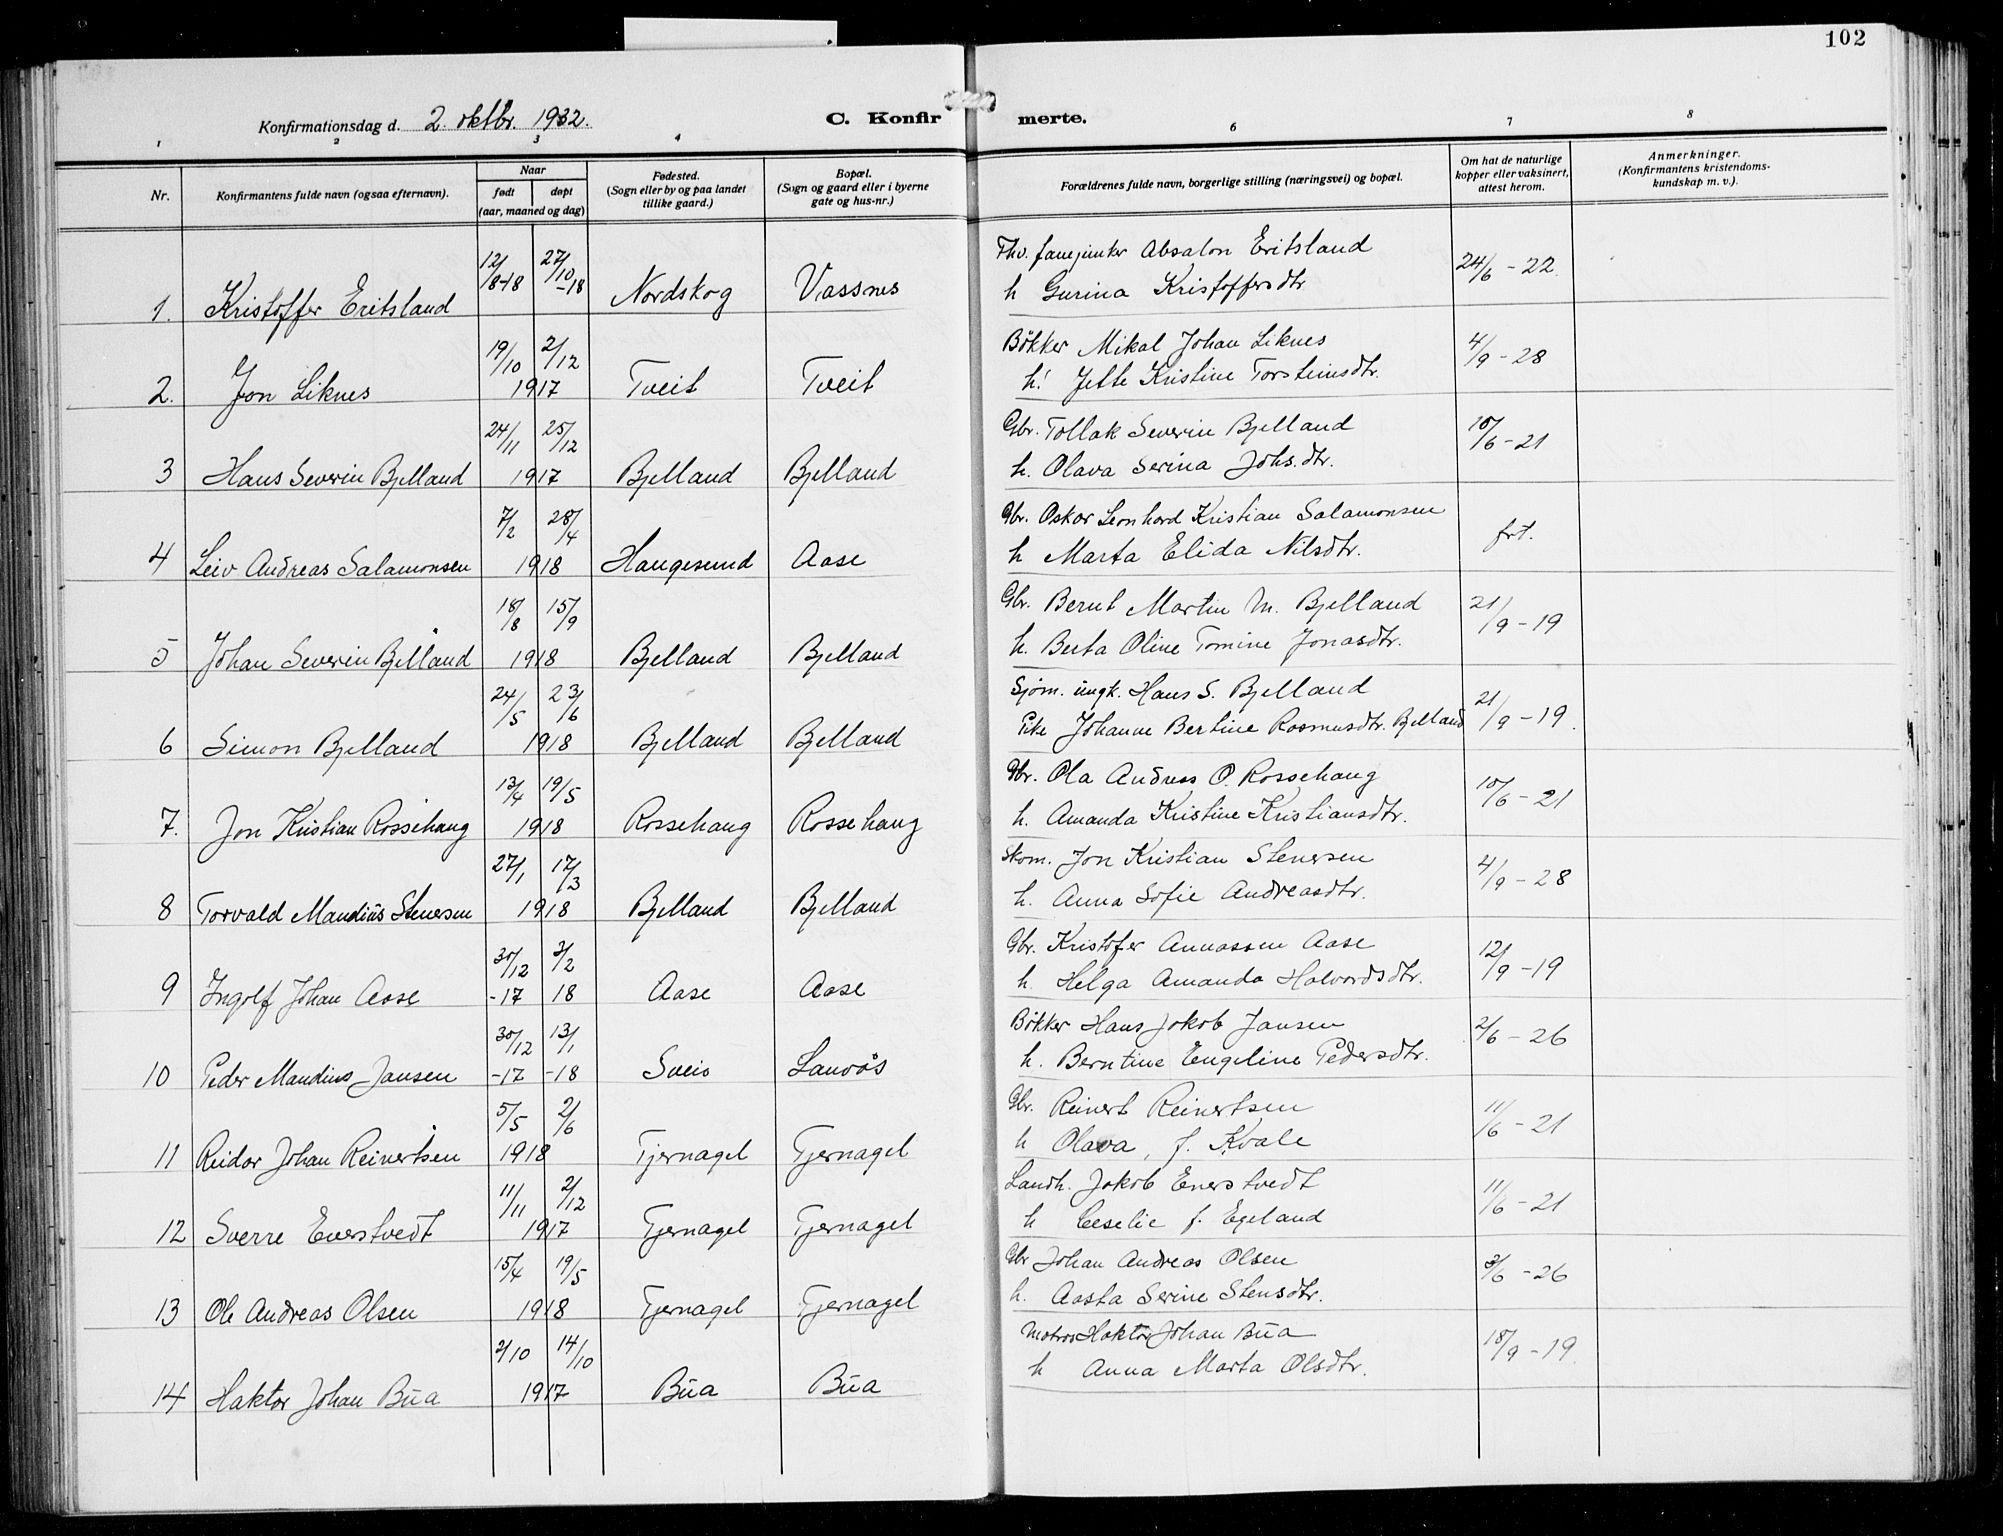 102
Konfirmationsdag d. 2. oktbr. 1932.
C. Konfirmerte.
1 2 3 4 6 7 8
Nr.
Konfirmantens fulde navn (ogsaa efternavn).
Naar
født døpt
(aar, maaned og dag)
Fødested.
(Sogn eller by og paa landet
tillike gaard.)
Bopæl.
(Sogn og gaard eller i byerne
gate og hus-nr.)
Forældrenes fulde navn, borgerlige stilling (næringsvei) og bopæl.
Om hat de naturlige
kopper eller vaksinert,
attest herom.
Anmerkninger.
(Konfirmantens kristendoms-
kundskap m. v.).
12/8-18 27/10-18 Fhv. fanejunker Absalon Eritsland
1. Kristoffer Eritsland Nordskog Vassnes h Gurina Kristoffersdtr 24/6-22.
19/10 2/12 Bökker Mikal Johan Liknes
2. Jon Liknes 1917 Tveit Tveit h. Jette Kristine Torsteinsdtr. 4/9-28
24/11 25/12 Gbr. Tollak Severin Bjelland
3 Hans Severin Bjelland 1917 Bjelland Bjelland h. Olava Serina Johs.dtr. 10/6-21
7/2 28/4 Gbr. Oskar Leonhard Kristian Salamonsen
4 Leiv Andreas Salamonsen 1918 Haugesund Aase h Marta Elida Nilsdtr. frt.
18/8 15/9 Gbr. Bernt Martin M. Bjelland
5 Johan Severin Bjelland 1918 Bjelland Bjelland h. Berta Oline Tomine Jonasdtr. 21/9-19
24/5 23/6 Sjöm. ungk. Hans S. Bjelland
6 Simon Bjelland 1918 Bjelland Bjelland Pike Johanne Bertine Rasmusdtr. Bjelland 21/9-19.
13/4 19/5 Gbr. Ola Andreas O. Rossehaug
7. Jon Kristian Rossehaug 1918 Rossehaug Rossehaug h. Amanda Kristine Kristiansdtr. 10/6-21
27/1 17/3 Skom. Jon Kristian Stenersen
8 Torvald Mandius Stenersen 1918 Bjelland Bjelland h. Anna Sofie Andreasdtr. 4/9-28
30/12 3/2 Gbr. Kristofer Annassen Aase
9 Ingolf Johan Aase -17 18 Aase Aase h. Helga Amanda Halvordsdtr. 12/9-19
30/12 13/1 Bökker Hans Jokob Jansen
10 Peder Mandius Jansen -17 -18 Sveio Lauvös h. Berntine Engeline Pedersdtr. 2/6-26
5/5 2/6 Gbr. Reinert Reinertsen
11 Reidar Johan Reinertsen 1918 Tjernagel Tjernagel h Olava, f. Kvale 11/6-21
11/11 2/12 Landh. Jakob Enerstvedt
12 Sverre Enerstvedt 1917 Tjernagel Tjernagel h Ceselie f. Egeland 11/6-21
15/4 19/5 Gbr Johan Andreas Olsen
13 Ole Andreas Olsen 1918 Tjernagel Tjernagel h. Aasta Serine Stensdtr. 3/6-26
2/10 14/10 Matros Haktor Johan Bua
14 Haktor Johan Bua 1917 Bua Bua h Anna Marta Olsdtr. 18/9-19.